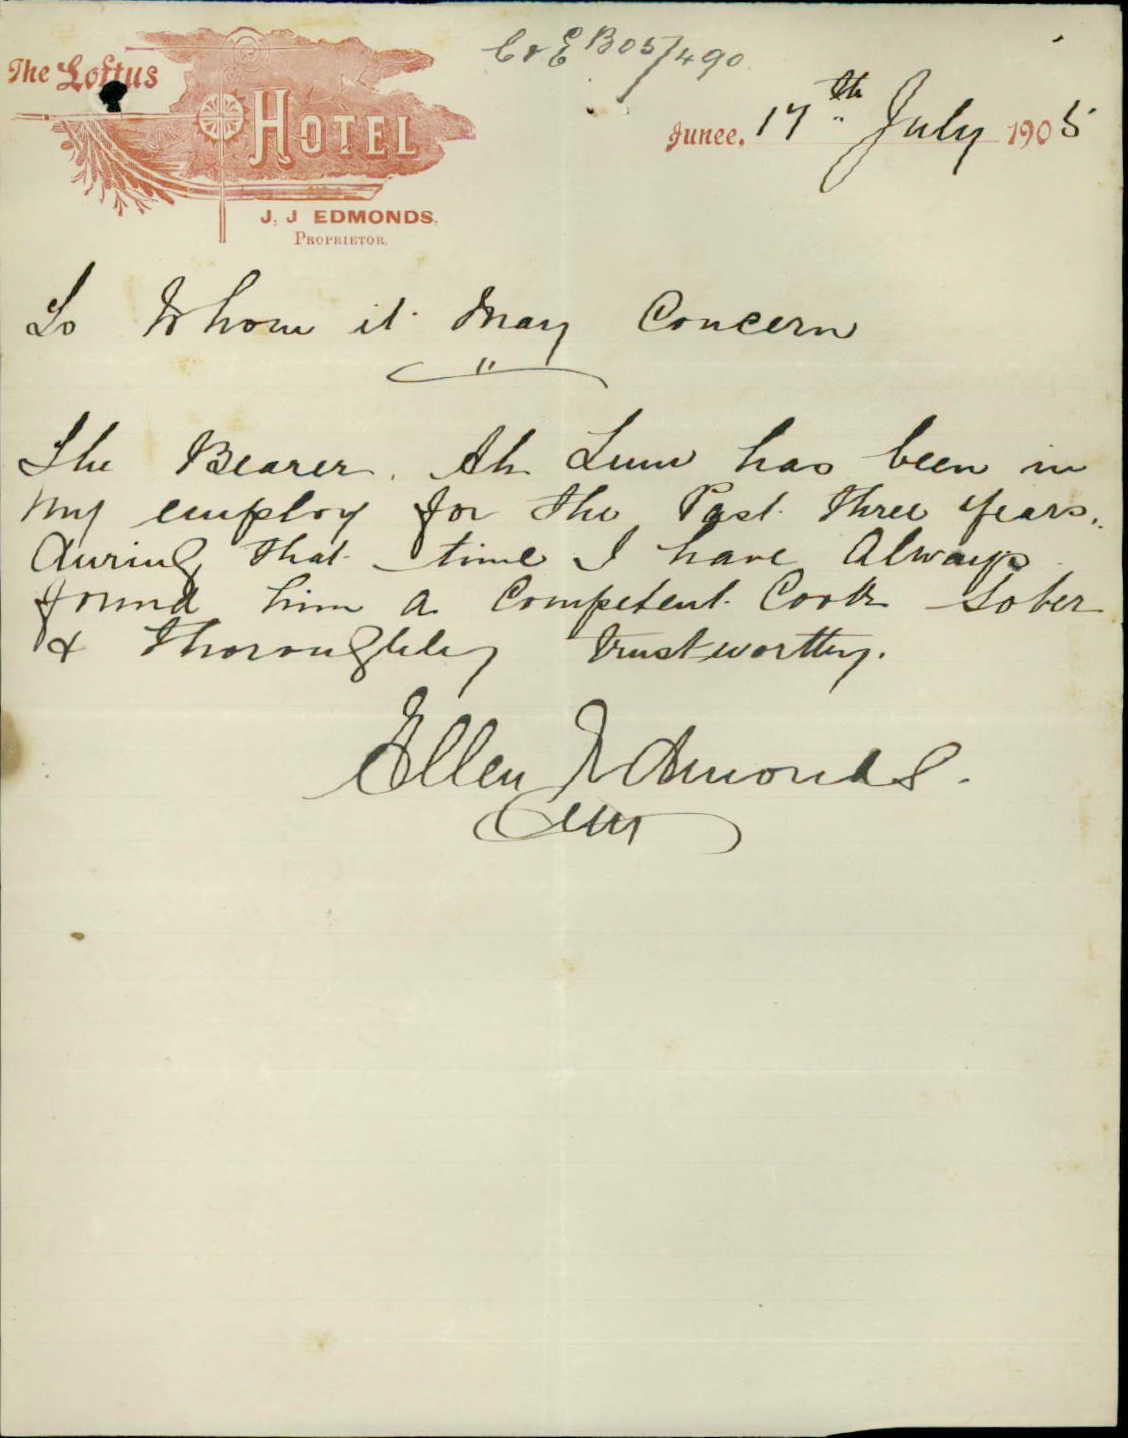 The Loftus
HOTEL
J. J EDMONDS,
PROPRIETOR.
C & E B05/490
Junee. 17th July 1905
To Whom it May Concern
The Bearer. Ah Lum has been in
my employ for the Past three years.
during that time I have Always
found him a Competent Cook Sober
& thoroughly trustworthy.
Ellen Edmonds.